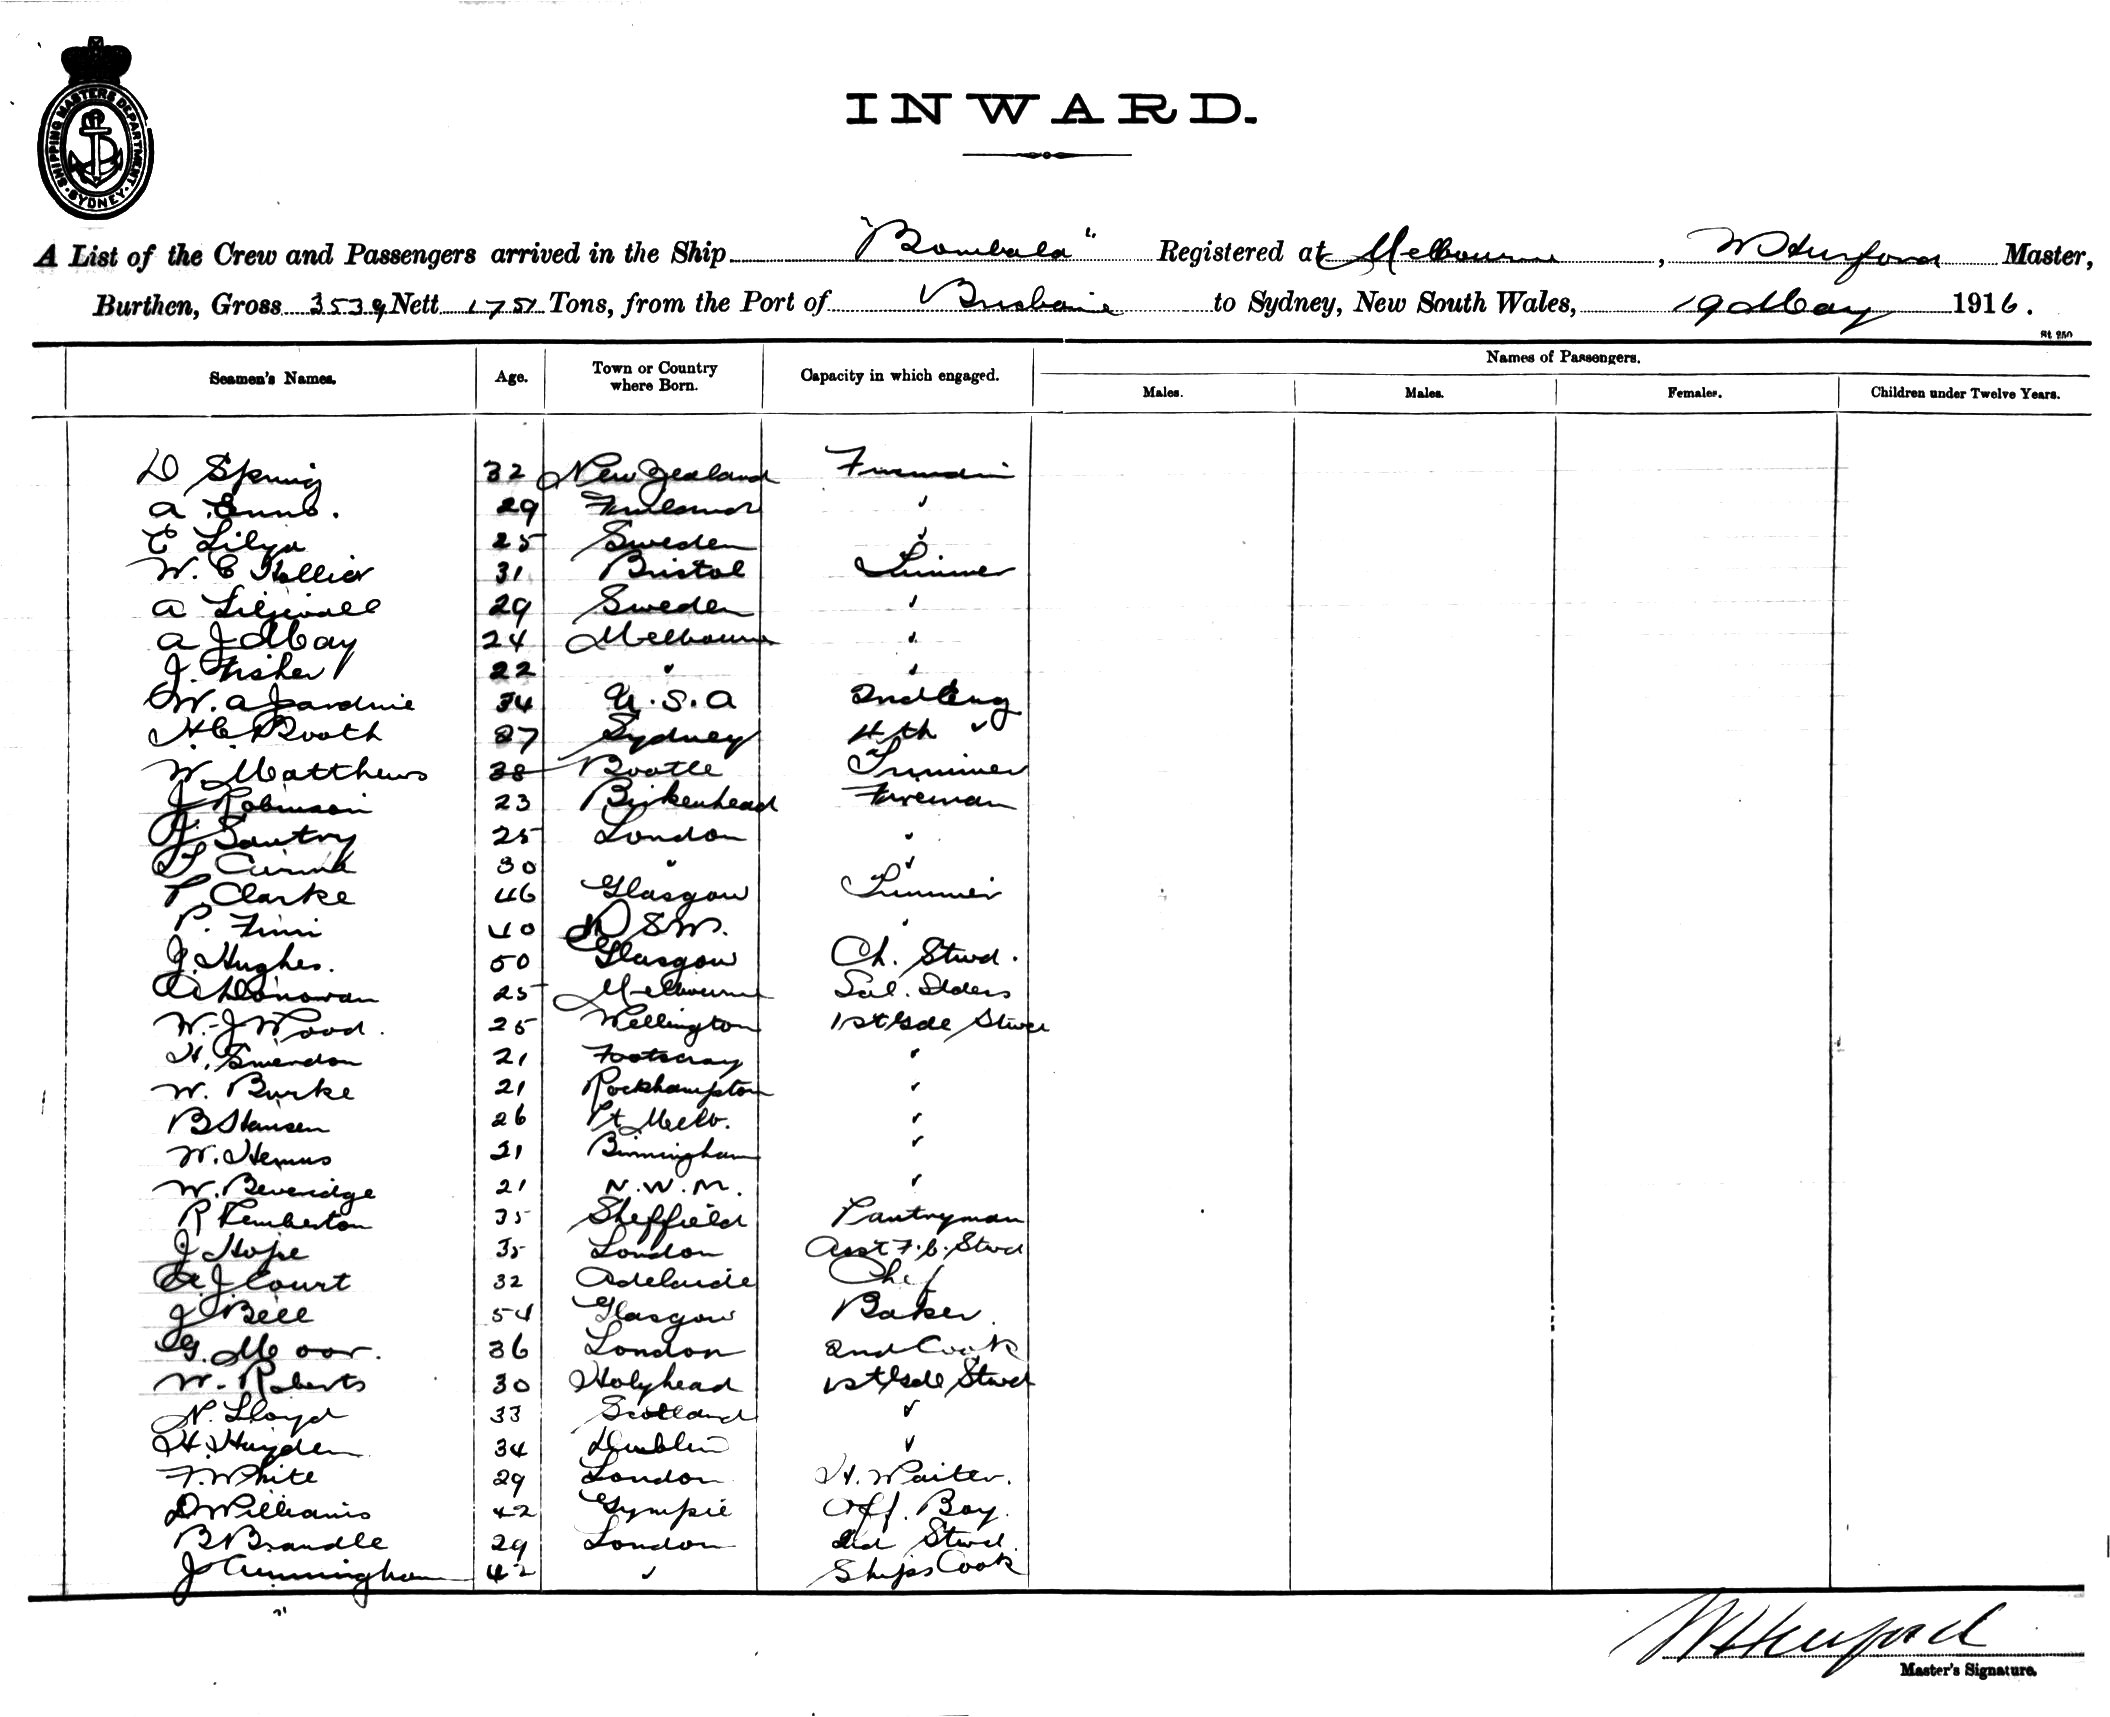 SHIPPING MASTERS DEPARTMENT · SYDNEY ·
INWARD.
A List of the Crew and Passengers arrived in the Ship "Bombala" Registered at Melbourne, W Hurford Master,
Burthen, Gross 3539 Nett 1751 Tons, from the Port of Brisbane to Sydney, New South Wales, 19 May 1916.
Names of Passengers.
Seamen's Names. Age. Town or Country where Born. Capacity in which engaged. Males. Males. Females. Children under Twelve Years.
D Spring 32 New Zealand Fireman
A 29 Finland "
E Lilya 25 Sweden "
W. E Hollier 31 Bristol Trimmer
A Liljewall 29 Sweden "
A J May 24 Melbourne "
J. Fisher 22 " "
W. A Jardine 34 U.S.A 2nd Eng
H. C. Booth 37 Sydney 4th "
W. Matthews 38 Bootle Trimmer
J Robinson 23 Birkenhead Fireman
J. Santry 25 London "
30 " "
P. Clarke 46 Glasgow Trimmer
P. Finn 40 N S W. "
J. Hughes. 50 Glasgow Ch. Stwd.
A Donovan 25 Melbourne Sal.
W. J Wood. 25 Wellington 1st Sde Stwd
H. Swendon 21 Footscray "
W. Burke 21 Rockhampton "
B Hansen 26 Pt Melb. "
W. Hemus 21 Birmingham "
W. Beveridge 21 N.W.M. "
R Pemberton 35 Sheffield Pantryman
J Hope 35 London Asst F.C. Stwd
A. J Court 32 Adelaide Chef
J Bell 54 Glasgow Baker
G. Moor. 36 London 2nd Cook
W. Roberts 30 Holyhead 1st Sde Stwd
N. Lloyd 33 Scotland "
H. Hayden 34 Dublin "
F. White 29 London H. Waiter.
D Williams 42 Gympie Off. Boy.
B Brandle 29 London 2nd Stwd.
J Cunningham 42 " Ships Cook
W Hurford
Master's Signature.